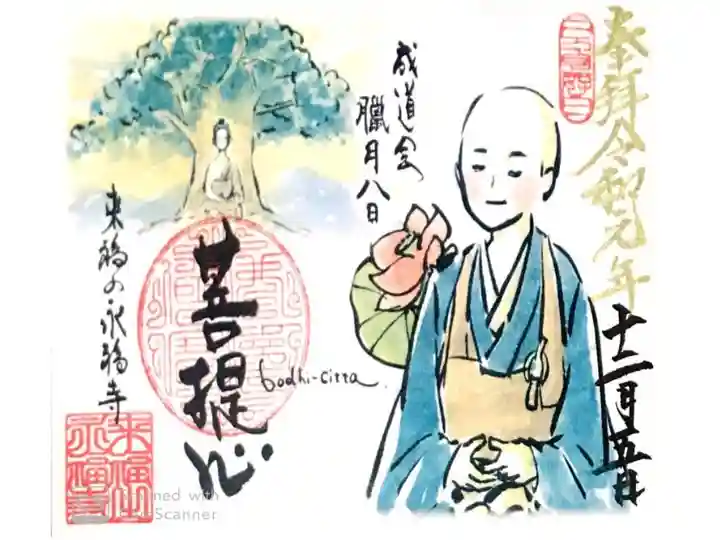 奉拝令和元年
十二月五日
成道会
臘月八日
菩提心
bodhi-citta
東福の永福寺
ned with
Scanner